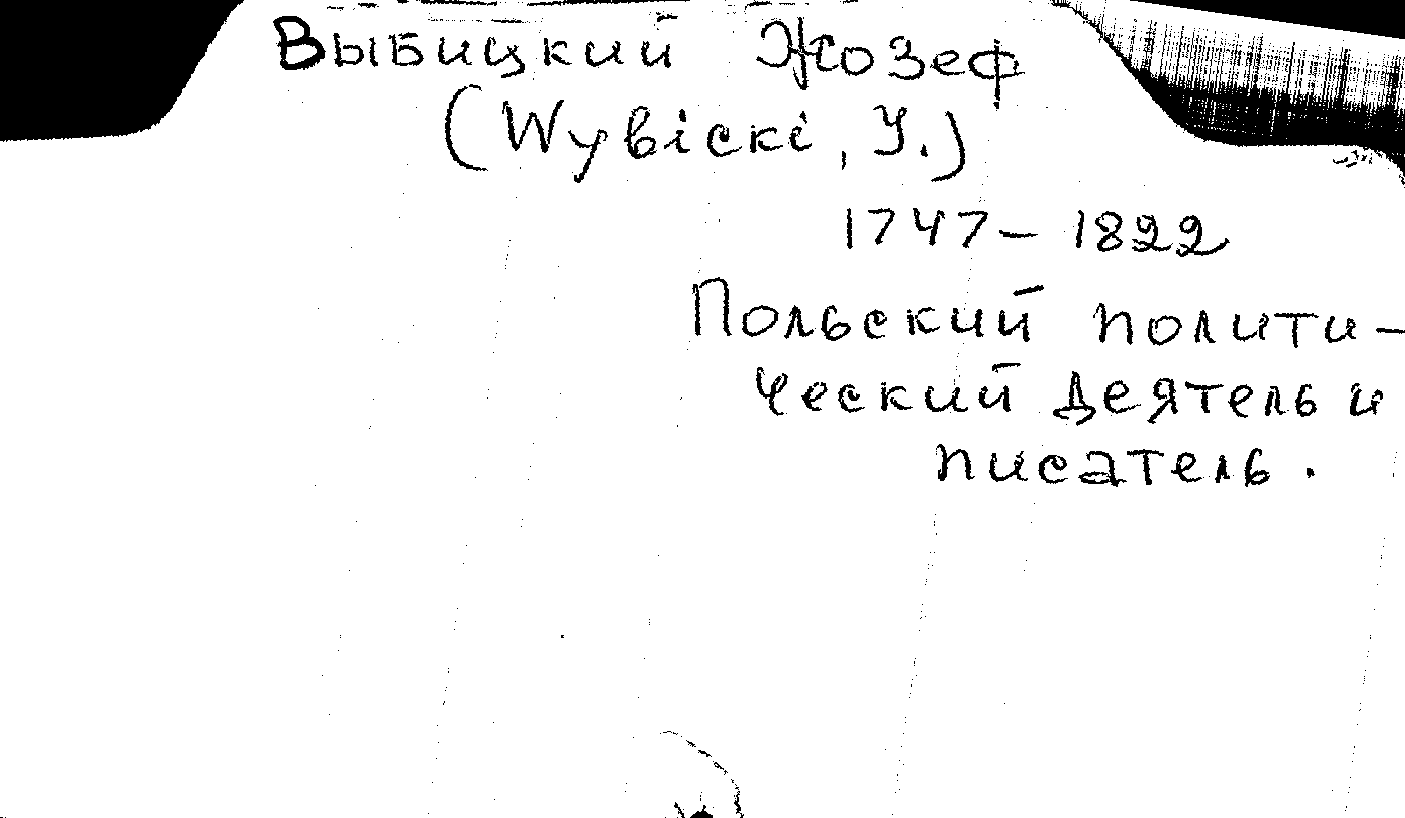 Выбицкий Жозеф
(Wybicki, J.)
1747 – 1822
Польский полити-
ческий деятель и
писатель.